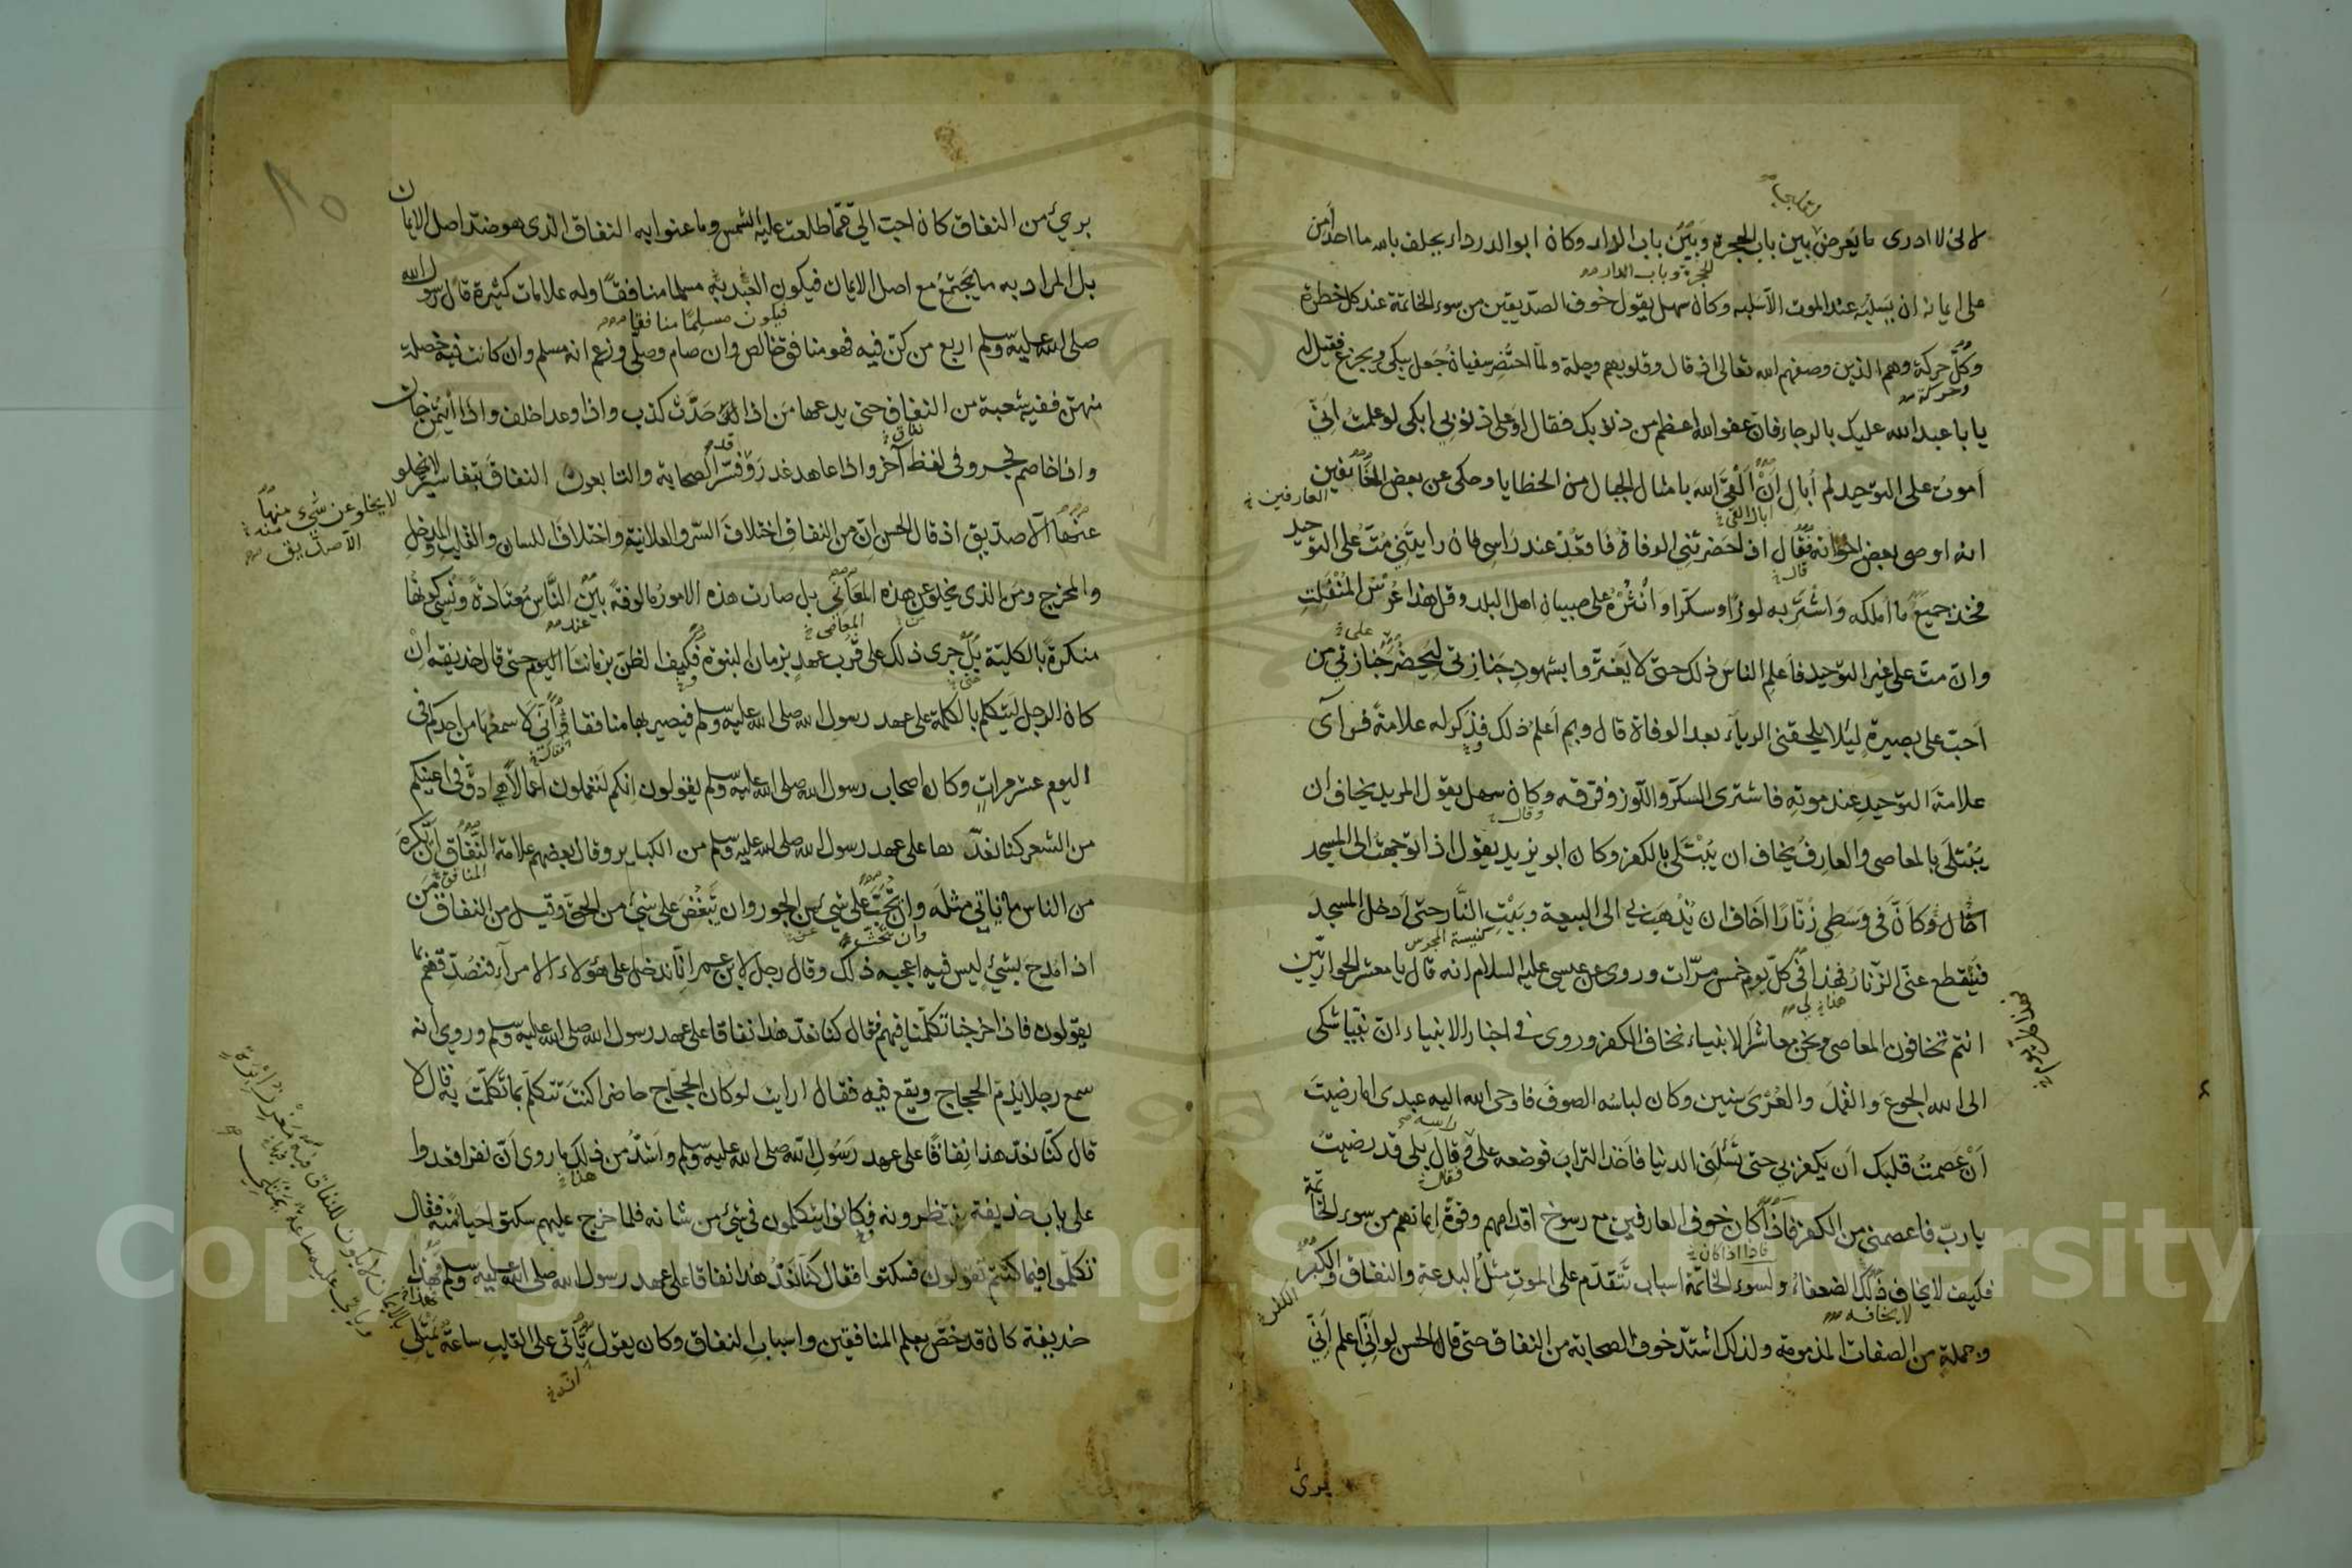 لاني لا ادرى ما يَعرض بين باب الحجرة وبَيْن باب الدار وكان ابو الدرداء يحلف بالله ما احد اَمن
على ايمانه ان يسلبه عند الموت الا سلبه وكان سهل يقول خوف الصدّيقين من سوء الخاتمة عند كل خطرة
وكلّ حركة وهم الذين وصفهم الله تعالى اذ قال وقلوبهم وجلة ولمّا احتُضِر سفيان جُعل يبكى ويجزع فقيل له
يا با عبد الله عليك بالرجاء فان عفو الله اعظم من ذنوبك فقال اوَعلى ذنوبي ابكى لو علمتُ اَنّي
أموتُ على التوحيد لم أبالِ اَنْ اَلْقى الله بامثال الجبال من الخطايا وحكى عن بعض الخائفين
انه اوصى بعض اخوانه فقال اذا حضرتني الوفاة فاقعُدْ عند رَاسى فان رايتَنِي مُتُّ على التوحيد
فخذ جميعَ ما املكه وَاشْتَرِ به لوزًا وسكّرا وانْثُرْهُ على صبيان اهل البلد وقل هذا عُرْسُ المُنْفَلِتِ
وان متّ على غير التوحيد فاَعلم الناسَ ذلك حتى لا يَغتَرّوا بشهودِ جَنازتى لِيَحضُرَ جَنازتي من
اَحبّ على بصيرةٍ لِيَلا يلحقنى الرياَء بعد الوفاة قال وبم اَعلم ذلك فذكر له علامةً فرآى
علامةَ التوحيدِ عند موتِه فاشترى السكّر واللّوز وفرّقه وكان سهل يقول المريد يخاف ان
يُبْتلَى بالمعاصى والعارِفُ يخاف ان يُبْتَلَى بالكفر وكان ابو يزيد يقول اذا توجهتُ الى المسجد
اخال وكاَنّ فى وَسَطى زُنّارًا اخاف ان يُذْهِبَ بي الى البيعة وبَيْتِ النَّار حتى اَدخل المسجدَ
فيَنقطع عنّى الزّنارُ فهذا فى كلّ يوم خمس مرّات وروى عن عيسى عليه السلام انه قال يا معشر الحواريّين
انتم تخافون المعاصى ونحن معاشرَ الانبياء نخاف الكفر وروى فى اخبار الانبياء انّ نبيّا شكى
الى الله الجوعَ والقُمَّلَ والعُرْىَ سنين وكان لباسُه الصوفَ فاوحى الله اليه عبدى اما رضيتَ
اَنْ عَصمتُ قلبك اَن يكفر بي حتى تَسْئَلنى الدنيا فاَخذ الترابَ فوضعه على راسه قال بلى قد رضيتُ
يا ربّ فاعصمنى من الكفر فاذا كان خوف العارفين مع رسوخ اقدامهم وقوةِ ايمانهم من سوء الخاتمة
فكيف لا يخاف ذلك الضعفاءُ ولسوء الخاتمة اسباب تتقدّم على الموتِ مثلُ البدعةِ والنفاق والكبر
وجملةٍ من الصفات المذمومة ولذلك اشتدّ خوف الصحابة من النفاق حتى قال الحسن لو اَنّي اعلم اَنّي
برئ
بريئ من النفاق كان احبّ اليّ ممّا طلعت عليه الشمس وما عنوا به النفاق الذى هو ضدّ اصل الايمان
بل المراد به ما يَجتمع مع اصل الايمان فيكون العبد به مسلما منافقًا وله علامات كثيرة قال رسول الله
صلى الله عليه وسلم اربع من كنّ فيه فهو منافق خالص وان صام وصلّى وزعم انه مسلم وان كانت فيه خصلة
منهنّ ففيه شعبة من النفاق حتى يدعها مَن اذا حَدَّث كذب واذا وعد اخلف واذا ائتُمن خان
واذا خاصم فجر وفى لفظ آخر واذا عاهد غدر وَفسّر الصحابة والتابعون النفاقَ بتفاسيرَ لا يخلو
عنها الّا صدّيق اذ قال الحسن انّ من النفاق اختلافَ السّر والعلانية واختلافَ اللسان والقلب والمدخلِ
والمخرج ومَن الذى يخلو عن هذه المعَانى بل صارت هذه الامورُ مالوفةً بين النَّاس مُعتَادةً ونُسِىَ كونُها
منكرةً بالكليّة بل جرى ذلك على قرب عهدٍ بزمان النبوة فكيف الظنّ بزماننا اليوم حتى قال حذيفة اِنْ
كان الرجل ليَتكلم بالكلمة على عهد رسول الله صلى الله عليه وسلم فيصير بها منافقا وَاَنّى لاَسمعُها من احدكم فى
اليوم عشر مراتٍ وكان اصحاب رسول الله صلى الله عليه وسلم يقولون انكم لتعملون اعمالًا هى ادقُّ فى اعينكم
من الشعر كنا نعدّها على عهد رسول الله صلى الله عليه وسلم من الكباير وقال بعضهم علامة النّفاق اَنْ تكره
من الناس ما تاتى مثلَه وان تُحِبَّ على شئ من الجور وان تُبْغِضَ على شئ من الحقّ وقيل من النفاق مَن
اذا مُدح بشئ ليس فيه اعجبه ذلك وقال رجل لابن عمر انّا ندخل على هؤلاء الامرآءِ فنصدّقهم بما
يقولون فاذا خرجنا تكلّمنا فيهم فقال كنا نعدّ هذا نفاقا على عهد رسول الله صلى الله عليه وسلم وروى انه
سمع رجلا يَذمّ الحجاج ويقع فيه فقال ارايت لو كان الحجّاج حاضرا اكنتَ تتكلّم بما تكلّمتَ به قال لا
قال كنّا نعدّ هذا نِفاقًا على عهد رَسُولِ الله صلى الله عليه وسلم واَشدُّ من ذلك ما روى اَنّ نفرا قعدوا
على باب حذيفة ينتظرونه فكانوا يتكلمون فى شئ من شانه فلما خرج عليهم سكتوا حياءً منه فقال
تكلّموا فيما كنتم تقولون فسكتوا فقال كنّا نعُدّ هذا نفاقا على عهد رسول الله صلى الله عليه وسلم وهذا
حذيفة كان قد خُصّ بعلم المنافقين واسبابِ النفاق وكان يقول يَاتى على القلبِ ساعةٌ يمتلئ
لا يخلو عن شئ منها
الا صدّيق
Copyright © King Saud University